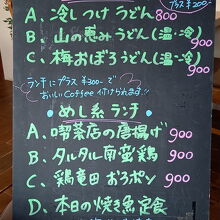 プラス ¥200-
A、冷しつけうどん 800
B、山の恵みうどん(温・冷)
C、梅おぼろうどん(温・冷) 900
ランチにプラス¥300-で
おいしいCoffee 付けられます!!
めし系ランチ
A、喫茶店の唐揚げ 900
B、タルタル南蛮鶏 900
C、鶏竜田おろポン 900
D、本日の焼き魚定食